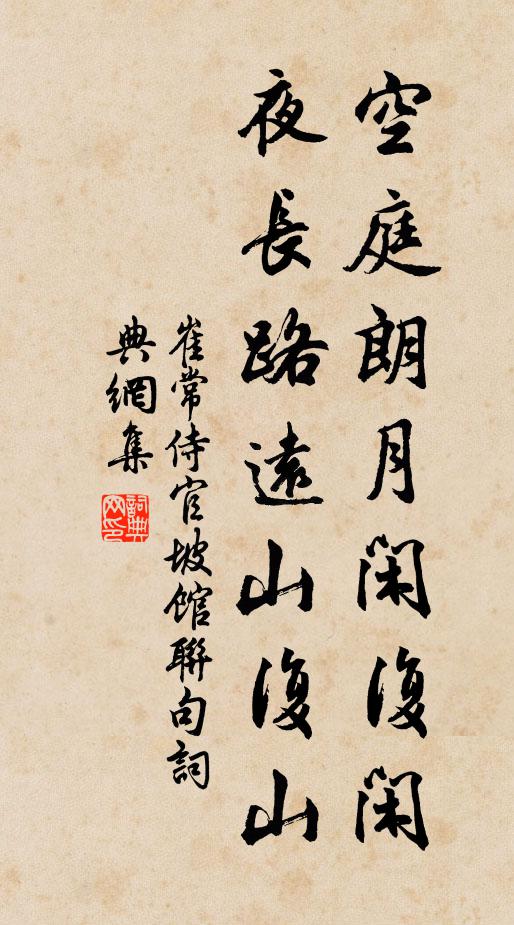 空庭朗月閑復閑
夜長路遠山復山
崔常侍官坡館聯句詞
典網集
詞典網印